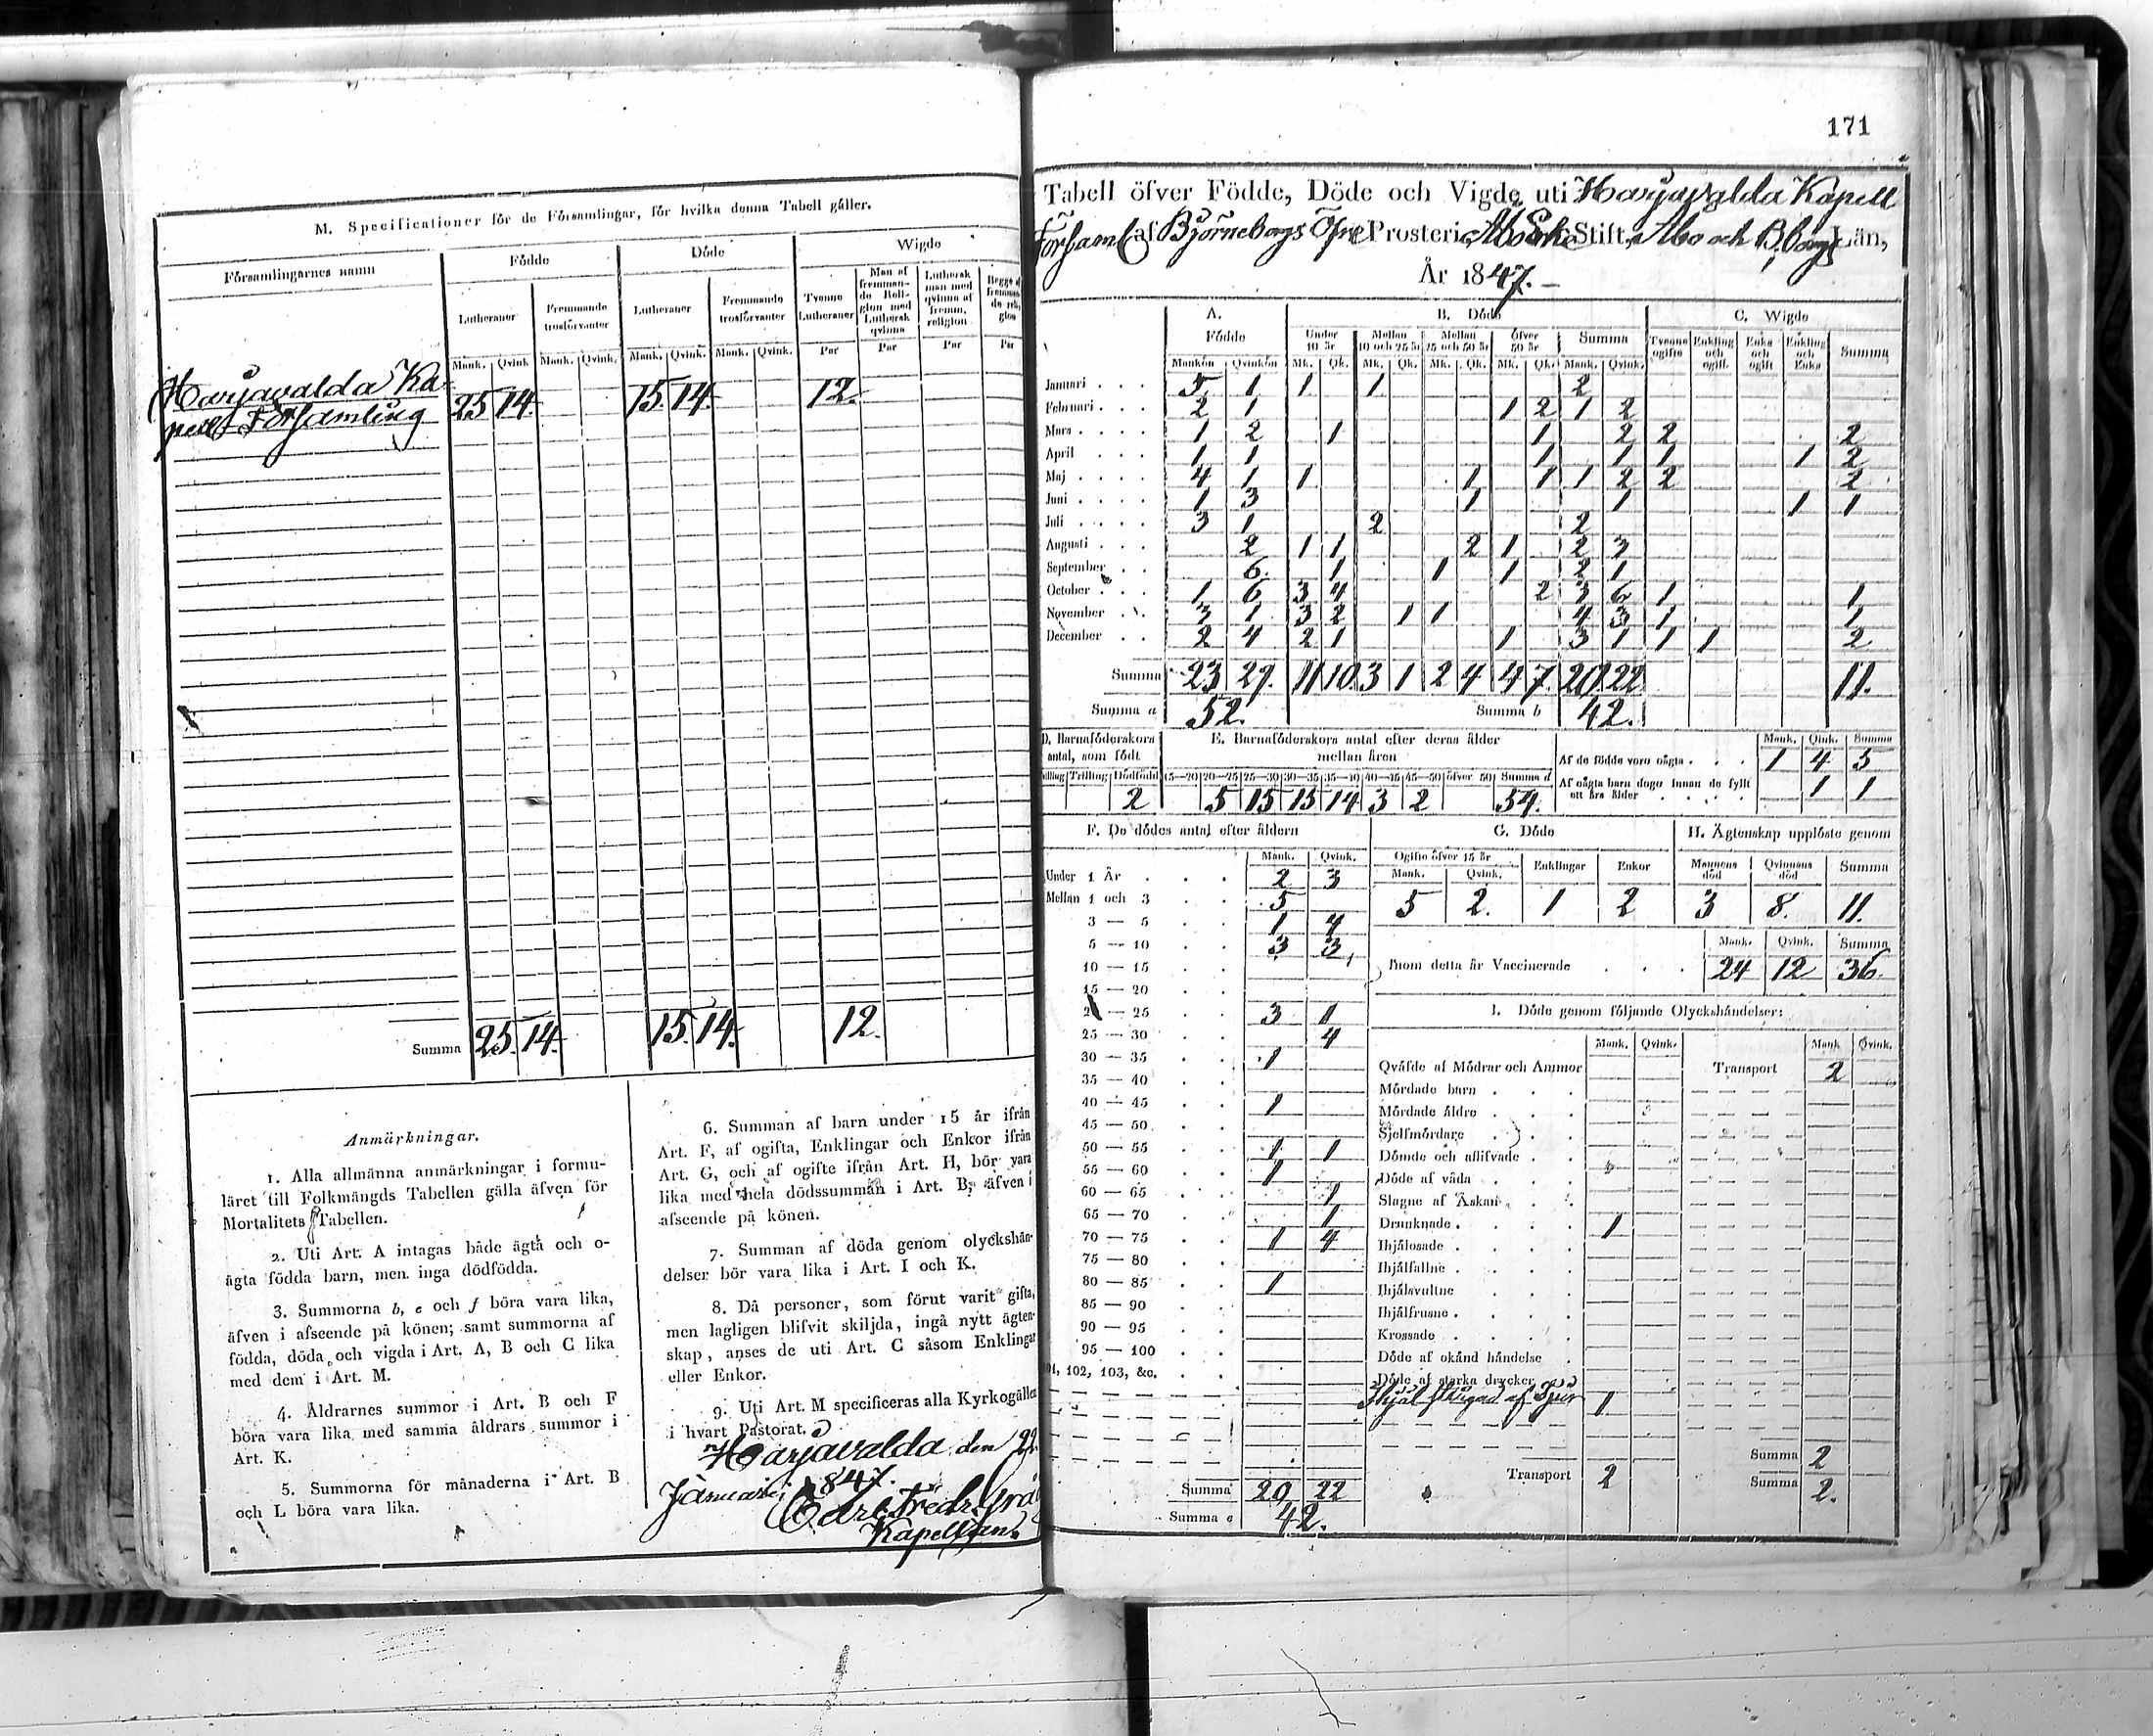 M. Specificationer för de Församlingar, för hvilka denna Tabell gäller.
Församlingarnes namn | Födde | Döde | Wigde
Lutheraner | Fremmande trosförvanter | Lutheraner | Fremmande trosförvanter | Tvenne Lutheraner | Man af fremmande Religion med Luthersk qvinna | Luthersk man med qvinna af fremm. religion
Mank. | Qvink | Mank. | Qvink. | Mank. | Qvink. | Mank. | Qvink. | Par | Par | Par | Par
Harjavalda Ka-
pell Församling | 25 | 14. | 15. | 14. | 12.
Summa | 25. | 14. | 15. | 14. | 12.
Anmärkningar.
1. Alla allmänna anmärkningar i formu-
läret till Folkmängds Tabellen gälla äfven för
Mortalitets Tabellen.
2. Uti Art. A intagas både ägta och o-
ägta födda barn, men inga dödfödda.
3. Summorna b, e och f böra vara lika,
äfven i afseende på könen; samt summorna af
födda, döda och vigda i Art. A, B och C lika
med dem i Art. M.
4. Åldrarnes summor i Art. B och F
böra vara lika med samma åldrars summor i
Art. K.
5. Summorna för månaderna i Art. B
och L böra vara lika.
6. Summan af barn under 15 år ifrån
Art. F, af ogifta, Enklingar och Enkor ifrån
Art. G, och af ogifte ifrån Art. H, bör vara
lika med hela dödssumman i Art. B, äfven i
afseende på könen.
7. Summan af döda genom olyckshän-
delser bör vara lika i Art. I och K.
8. Då personer, som förut varit gifta,
men lagligen blifvit skiljda, ingå nytt ägten-
skap, anses de uti Art. C såsom Enklingar
eller Enkor.
9. Uti Art. M specificeras alla Kyrkogällen
i hvart Pastorat.
Harjavalda den 22
Januari 1847.
Carl Fredr.
Kapellan.
171
Tabell öfver Födde, Döde och Vigde uti Harjavalda Kapell
Församl. af Björneborgs Öfre Prosteri, Åbo Erke Stift, Åbo och B.borgs Län,
År 1847.
A. | B. Döde | C. Wigde
Födde | Under 10 år | Mellan 10 och 25 år | Mellan 25 och 50 år | öfver 50 år | Summa | Tvenne ogifte | Enkling och ogift. | Enka och ogift | Enkling och Enka | Summa
Mankön | Qvinkön | Mk. | Qk. | Mk. | Qk. | Mk. | Qk. | Mk. | Qk. | Mank. | Qvink.
Januari | 5 | 1 | 1 | 1 | 2
Februari | 2 | 1 | 1 | 2 | 1 | 2
Mars | 1 | 2 | 1 | 1 | 2 | 2 | 2
April | 1 | 1 | 1 | 1 | 1 | 1 | 2
Maj | 4 | 1 | 1 | 1 | 1 | 1 | 2 | 2 | 2
Juni | 1 | 3 | 1 | 1 | 1 | 1
Juli | 3 | 1 | 2 | 2
Augusti | 2 | 1 | 1 | 2 | 1 | 2 | 3
September | 6 | 1 | 1 | 1 | 2 | 1
October | 1 | 6 | 3 | 4 | 2 | 3 | 6 | 1 | 1
November | 3 | 1 | 3 | 2 | 1 | 1 | 4 | 3 | 1 | 1
December | 2 | 4 | 2 | 1 | 1 | 3 | 1 | 1 | 1 | 2
Summa | 23 | 29. | 11 | 10 | 3 | 1 | 2 | 4 | 4 | 7 | 20 | 22 | 11.
Summa a | 52. | Summa b | 42.
D. Barnaföderskors antal, som födt | E. Barnaföderskors antal efter deras ålder mellan åren | Mank. | Qink. | Summa
Trilling | Dödfödd | 15—20 | 20—25 | 25—30 | 30—35 | 35—40 | 40—45 | 45—50 | öfver 50 | Summa d
2 | 5 | 15 | 15 | 14 | 3 | 2 | 54.
Af de födde voro oägta | 1 | 4 | 5
Af oägta barn dogo innan de fyllt ett års ålder | 1 | 1
F. De dödes antal efter åldern
Mank. | Qvink.
Under 1 År | 2 | 3
Mellan 1 och 3 | 5
3 — 5 | 1 | 4
5 — 10 | 3 | 3
10 — 15
15 — 20
— 25 | 3 | 1
25 — 30 | 4
30 — 35 | 1
35 — 40
40 — 45 | 1
45 — 50
50 — 55 | 1 | 1
55 — 60 | 1
60 — 65 | 1
65 — 70 | 1
70 — 75 | 1 | 4
75 — 80
80 — 85 | 1
85 — 90
90 — 95
95 — 100
102, 103, &c.
Summa | 20 | 22
Summa e | 42.
G. Döde | H. Ägtenskap upplöste genom
Ogifte öfver 15 år | Enklingar | Enkor | Mannens död | Qvinnans död | Summa
Mank. | Qvink.
5 | 2. | 1 | 2 | 3 | 8. | 11.
Mank. | Qvink. | Summa
Inom detta år Vaccinerade | 24 | 12 | 36.
I. Döde genom följande Olyckshändelser:
Mank. | Qvink. | Mank | Qvink.
Qväfde af Mödrar och Ammor | Transport | 2
Mördade barn
Mördade äldre
Sjelfmördare
Dömde och aflifvade
Döde af våda
Slagne af Åskan
Drunknade | 1
Ihjälosade
Ihjälfallne
Ihjälsvultne
Ihjälfrusne
Krossade
Döde af okänd händelse
Döde af starka drycker
Ihjäl stångad af Tjur | 1
Summa | 2
Transport | 2 | Summa | 2.